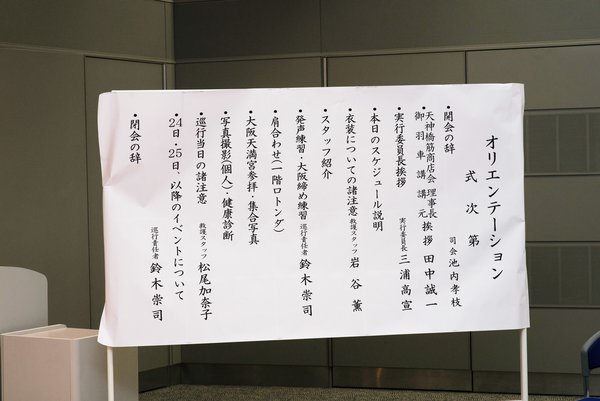 オリエンテーション
式次第
司会 池内孝枝
・開会の辞
天神橋筋商店会 理事長
御羽車講 講元
挨拶 田中誠一
・実行委員長挨拶 実行委員長 三浦高宣
・本日のスケジュール説明
・衣装についての諸注意 救護スタッフ 岩谷薫
・スタッフ紹介
・発声練習・大阪締め練習 巡行責任者 鈴木崇司
・肩合わせ(一階ロトンダ)
・大阪天満宮参拝・集合写真
・写真撮影(個人)・健康診断
・巡行当日の諸注意 救護スタッフ 松尾加奈子
・24日・25日、以降のイベントについて
・閉会の辞 巡行責任者 鈴木崇司